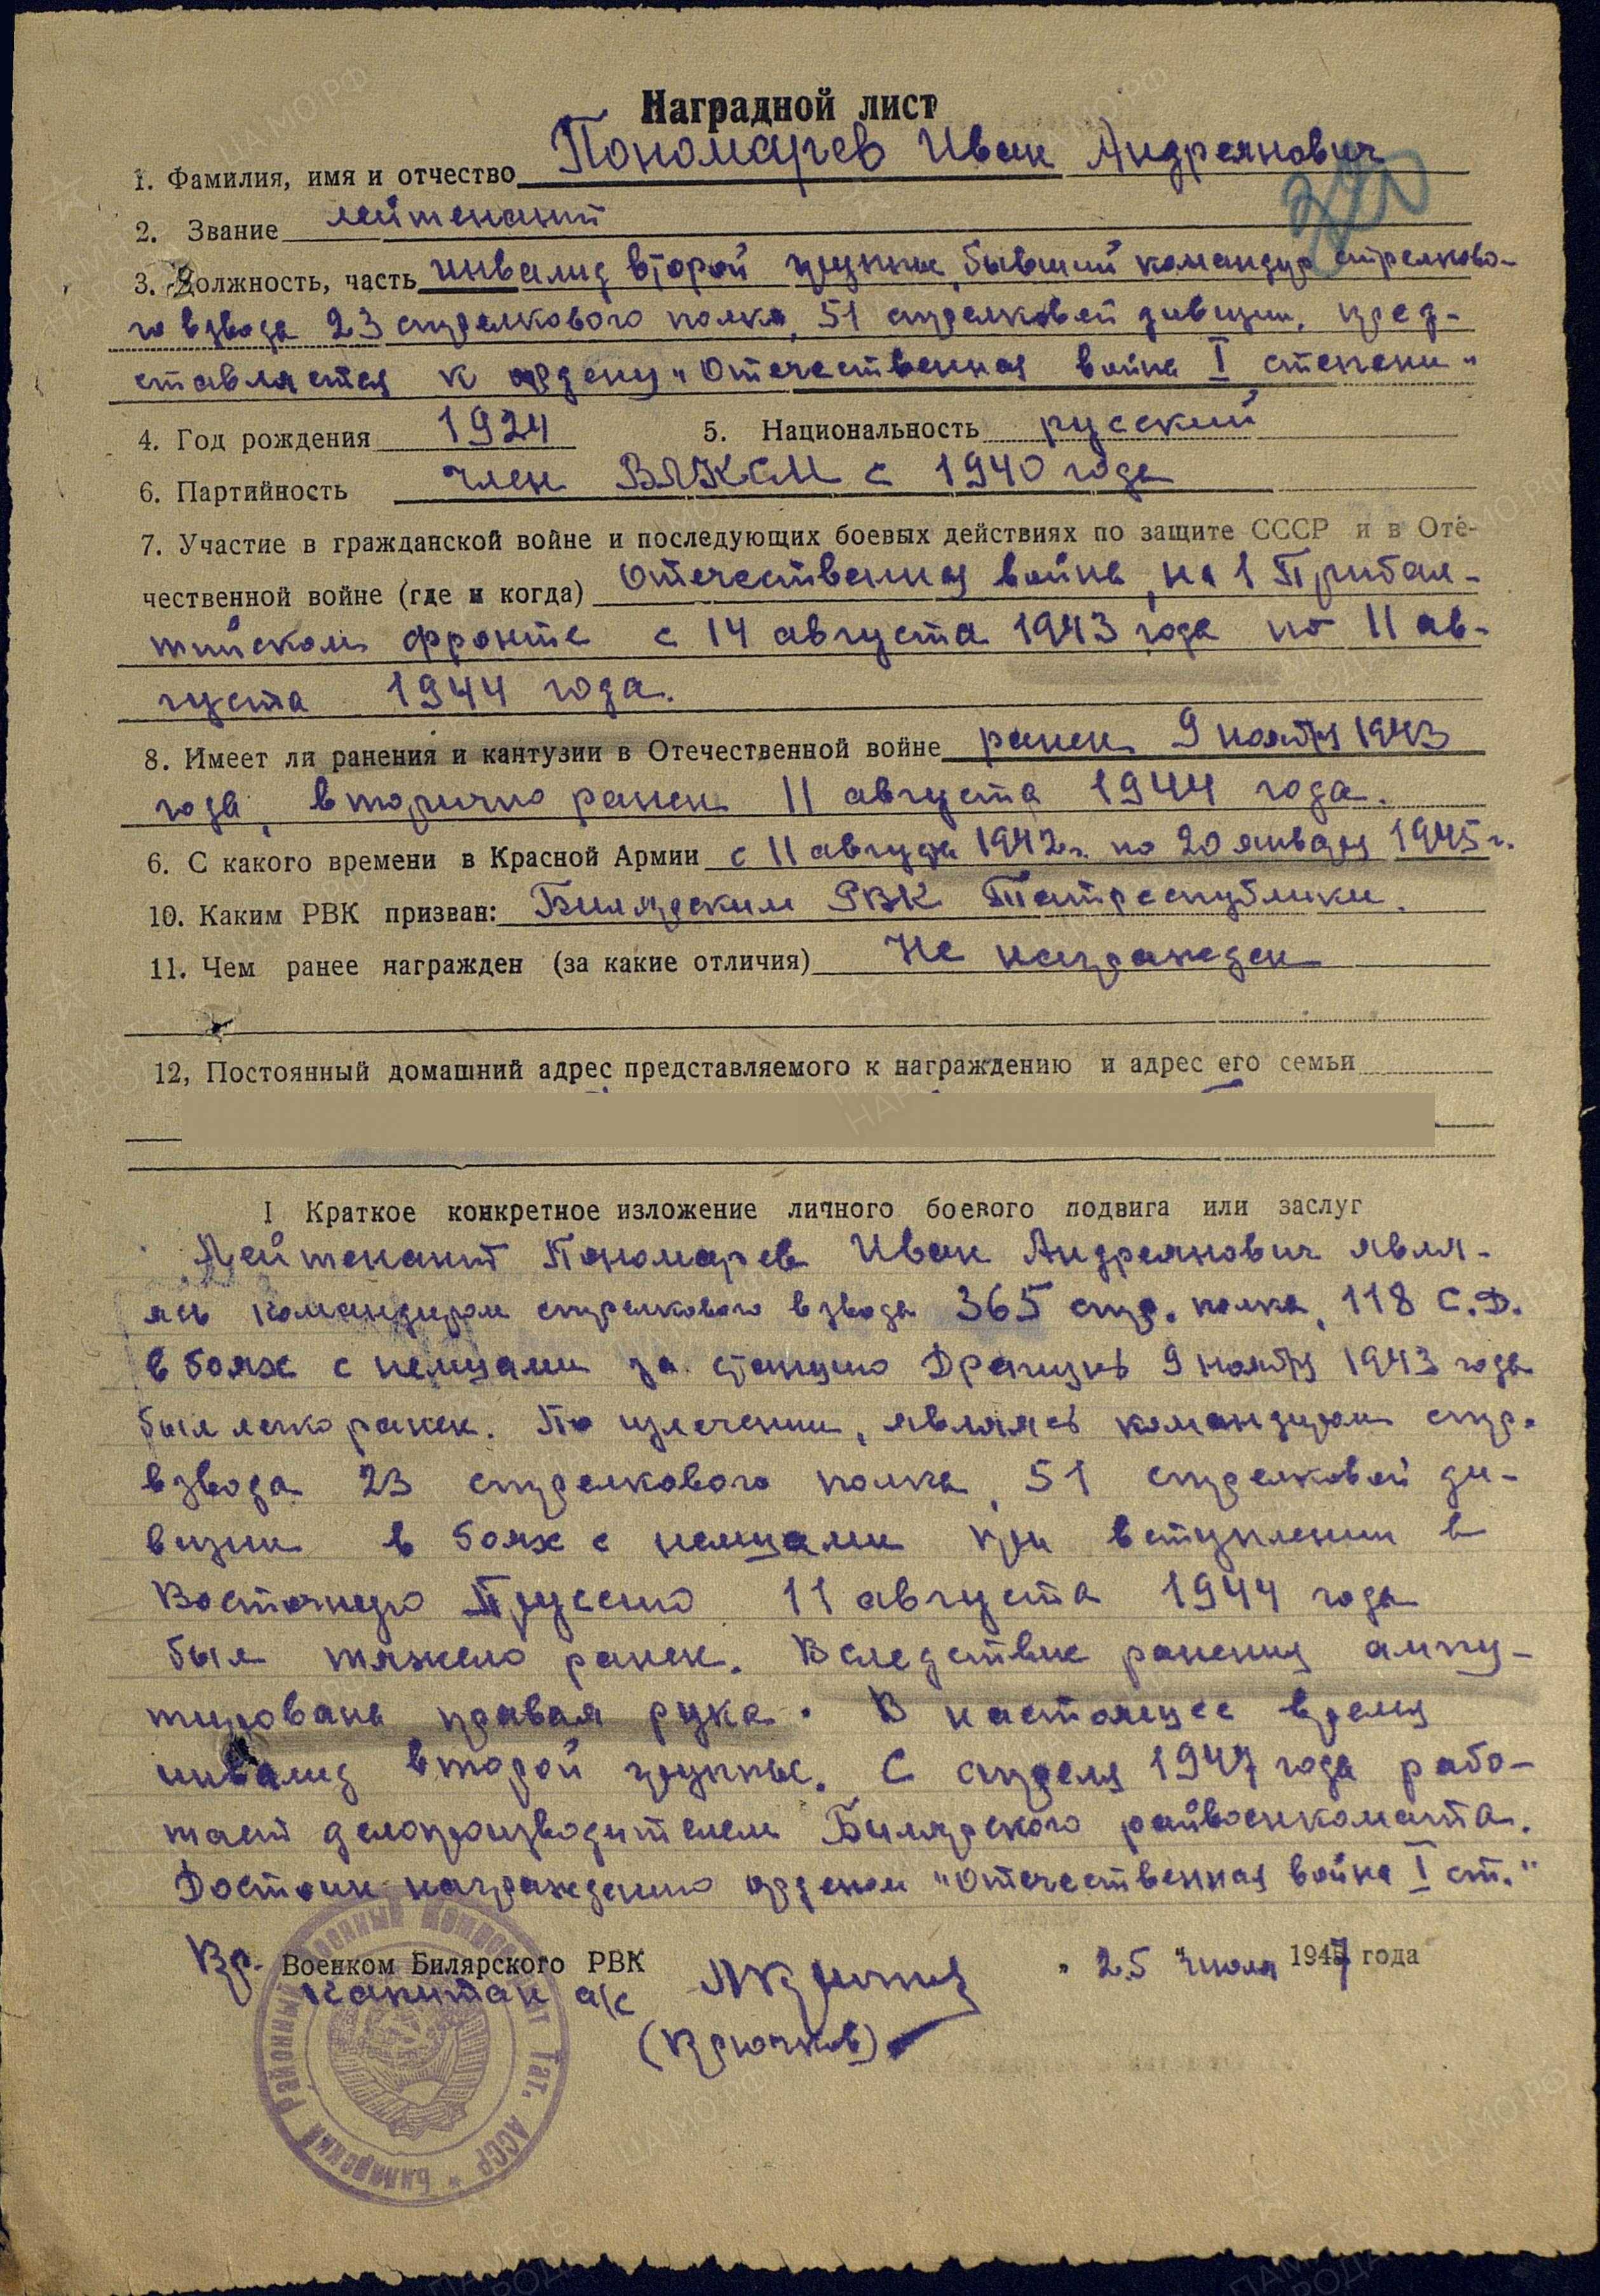 Наградной лист
1. Фамилия, имя и отчество Пономарев Иван Андреянович
2. Звание лейтенант
3. Должность, часть инвалид второй группы, бывший командир стрелково-
го взвода 23 стрелкового полка, 51 стрелковой дивизии, пред-
ставляется к ордену „Отечественная война I степени"
4. Год рождения 1924 5. Национальность русский
6. Партийность член ВЛКСМ с 1940 года
7. Участие в гражданской войне и последующих боевых действиях по защите СССР и в Оте-
чественной войне (где и когда) Отечественная война, на 1 Прибал-
тийском фронте с 14 августа 1943 года по 11 ав-
густа 1944 года.
8. Имеет ли ранения и кантузии в Отечественной войне ранен 9 ноября 1943
года, вторично ранен 11 августа 1944 года.
6. С какого времени в Красной Армии с 11 августа 1942 г. по 20 января 1945 г.
10. Каким РВК призван: Билярским РВК Татреспублики.
11. Чем ранее награжден (за какие отличия) Не награжден
12, Постоянный домашний адрес представляемого к награждению и адрес его семьи
I Краткое конкретное изложение личного боевого подвига или заслуг
Лейтенант Пономарев Иван Андреянович явля-
ясь командиром стрелкового взвода 365 стр. полка, 118 С.Д.
в боях с немцами за станцию 9 ноября 1943 года
был легко ранен. По излечении, являясь командиром стр.
взвода 23 стрелкового полка, 51 стрелковой ди-
визии в боях с немцами при вступлении в
Восточную Пруссию 11 августа 1944 года
был тяжело ранен. Вследствие ранения ампу-
тирована правая рука. В настоящее время
инвалид второй группы. С апреля 1947 года рабо-
тает делопроизводителем Билярского райвоенкомата.
Достоин награждению орденом "Отечественная война I ст."
Вр. Военком Билярского РВК „25" июля 1947 года
капитан а/с
(Крючков)
Билярский Районный Военный Комиссариат Тат. АССР